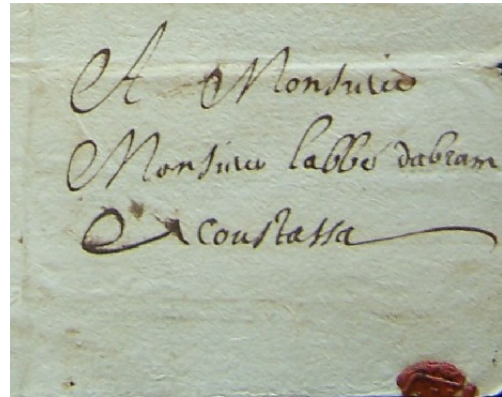 A Monsieur
Monsieur labbé dabram
A coustassa